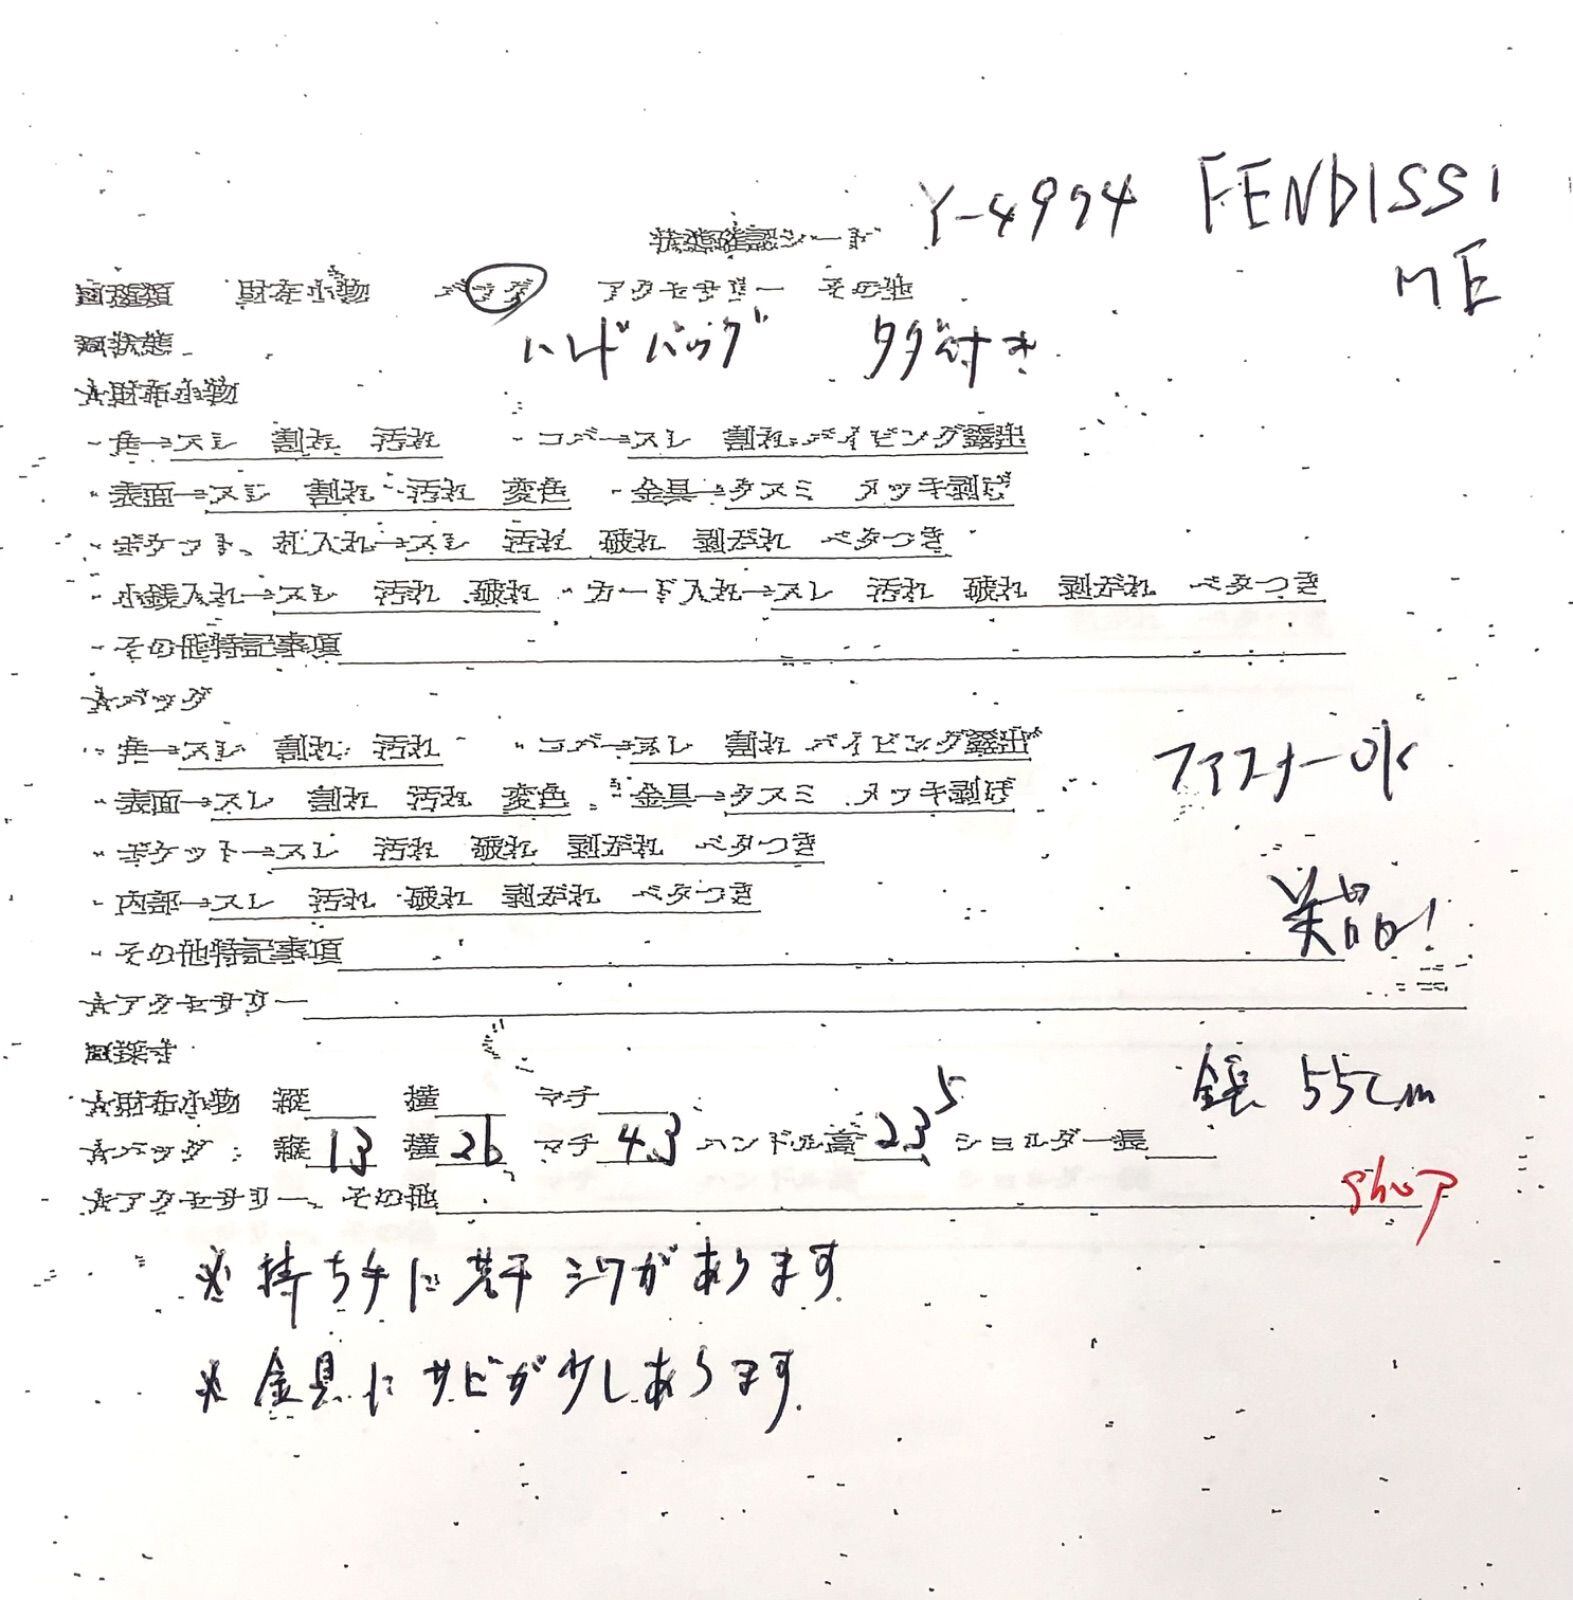 Y-4974 FENDISSI
ME
状態確認シート
■種類 財布小物 バッグ アクセサリー その他
■状態 ハンドバッグ タグ付き
☆財布小物
・角→スレ 割れ 汚れ ・コバ→スレ 割れ パイピング露出
・表面→スレ 割れ 汚れ 変色 ・金具→クスミ メッキ剥げ
・ポケット、札入れ→スレ 汚れ 破れ 剥がれ ベタつき
・小銭入れ→スレ 汚れ 破れ ・カード入れ→スレ 汚れ 破れ 剥がれ ベタつき
・その他特記事項
☆バッグ
・角→スレ 割れ 汚れ ・コバ→スレ 割れ パイピング露出
ファスナーOK
・表面→スレ 割れ 汚れ 変色 ・金具→クスミ メッキ剥げ
・ポケット→スレ 汚れ 破れ 剥がれ ベタつき
・内部→スレ 汚れ 破れ 剥がれ ベタつき
美品!
・その他特記事項
☆アクセサリー
■採寸
全長 55cm
☆財布小物 縦 横 マチ
☆バッグ 縦 13 横 26 マチ 4.3 ハンドル高 23.5 ショルダー長
☆アクセサリー、その他
shop
※持ち手に若干シワがあります
※金具にサビが少しあります.